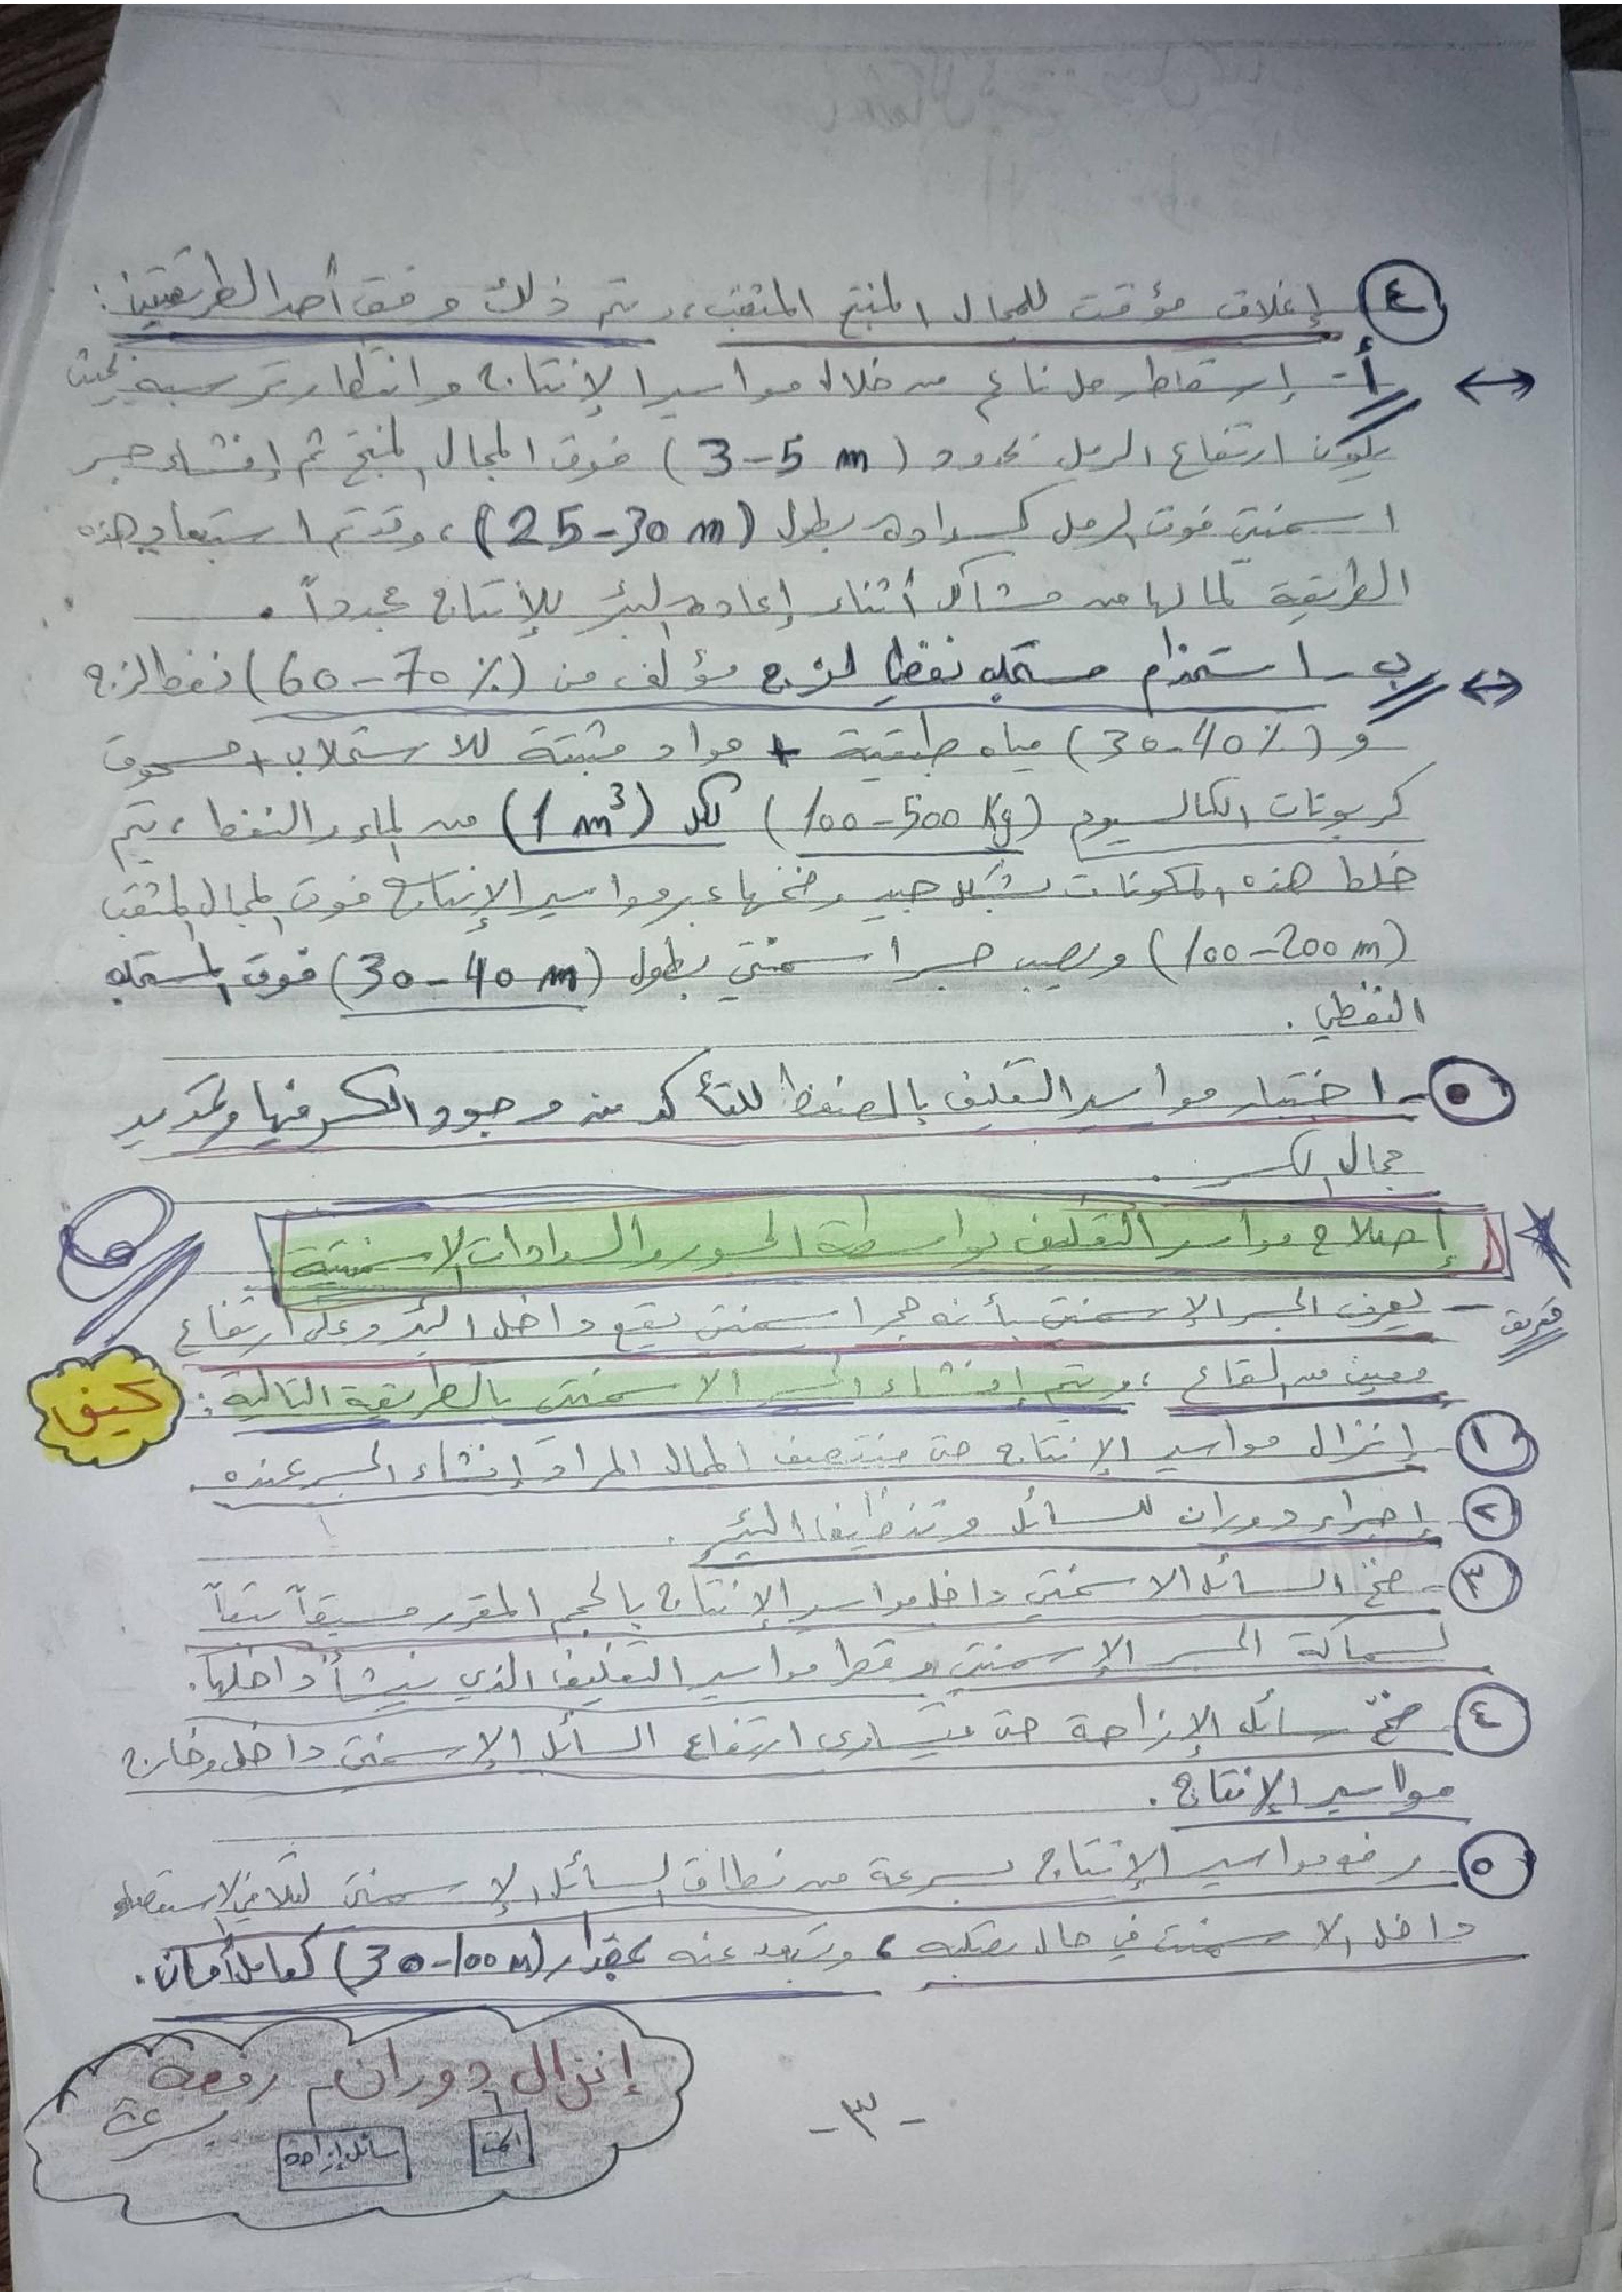 ٤ إغلاق مؤقت للمجال المنتج المثقب، يتم ذلك وفق أحد الطريقتين:
أ- إسقاط رمل ناعم من خلال مواسير الإنتاج وانتظار ترسبه بحيث
يكون ارتفاع الرمل بحدود (3-5 m) فوق المجال المنتج ثم إنشاء جسر
اسمنتي فوق الرمل كسدادة بطول (25-30 m)، وقد تم استبعاد هذه
الطريقة لما لها من مشاكل أثناء إعادة البئر للإنتاج مجدداً.
ب- استخدام مستحلب نفطي لزج مؤلف من (60-70%) نفط لزج
و (30-40%) مياه طبقية + مواد مثبتة للاستحلاب + مسحوق
كربونات الكالسيوم (100-500 Kg) لكل (1 m³) من الماء والنفط، يتم
خلط هذه المكونات بشكل جيد وضخها عبر مواسير الإنتاج فوق المجال المثقب
(100-200 m) ويصب جسر اسمنتي بطول (30-40 m) فوق المستحلب
النفطي.
٥- اختبار مواسير التغليف بالضغط للتأكد من وجود الكسر فيها وتحديد
مجال الكسر.
إصلاح مواسير التغليف بواسطة الجسور والسدادات الاسمنتية
تعريف
- يعرف الجسر الإسمنتي بأنه حجر اسمنتي يقع داخل البئر وعلى ارتفاع
معين من القاع، ويتم إنشاء الجسر الاسمنتي بالطريقة التالية:
كيف
١- إنزال مواسير الإنتاج حتى منتصف المجال المراد إنشاء الجسر عنده.
٢- إجراء دوران للسائل وتنظيف البئر.
٣- ضخ السائل الاسمنتي داخل مواسير الإنتاج بالحجم المقرر مسبقاً تبعاً
لسماكة الجسر الإسمنتي وقطر مواسير التغليف الذي ينشأ داخلها.
٤- ضخّ سائل الإزاحة حتى يتساوى ارتفاع السائل الإسمنتي داخل وخارج
مواسير الإنتاج.
٥- رفع مواسير الإنتاج بسرعة من نطاق السائل الإسمنتي لتلافي الاستعصاء
داخل الاسمنت في حال تصلبه، وتبعد عنه بمقدار (30-100 m) كعامل أمان.
إنزال دوران رفعة
بسرعة
سائل إزاحة
-٣-